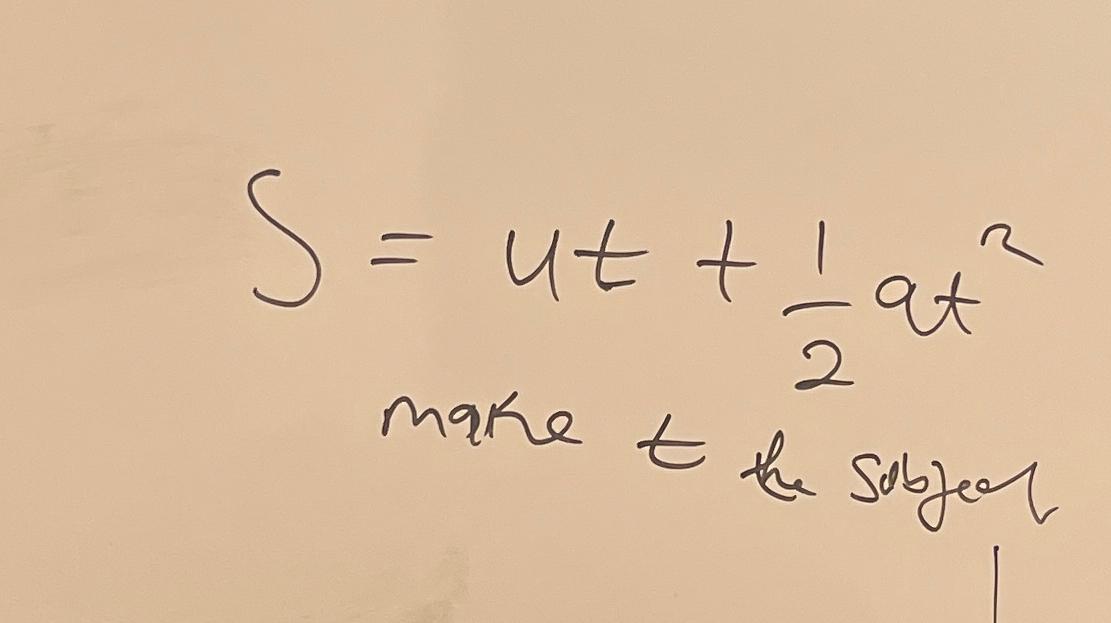 S = ut + 1/2 at²
make t the subject